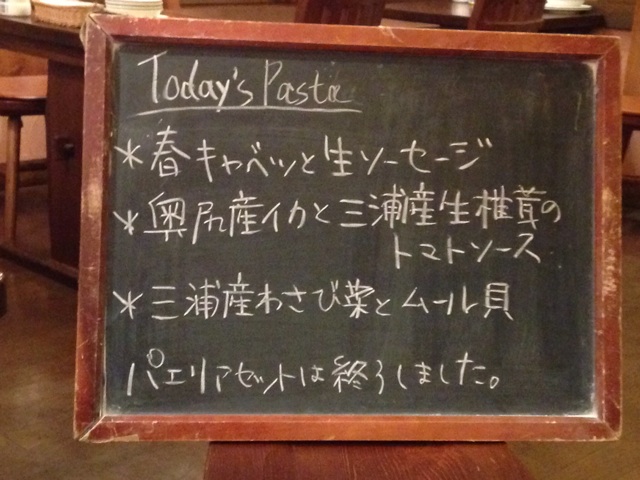 Today's Pasta
*春キャベツと生ソーセージ
*奥尻産イカと三浦産生椎茸の
トマトソース
*三浦産わさび菜とムール貝
パエリアセットは終うしました。